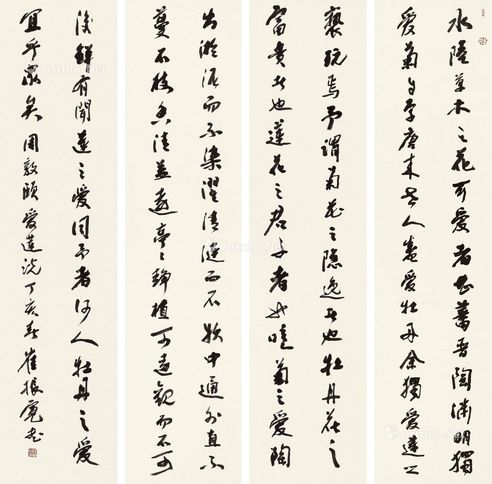 水陸草木之花可愛者甚蕃晉陶淵明獨
愛菊自李唐來世人盛愛牡丹余獨愛蓮之
褻玩焉予謂菊花之隱逸者也牡丹花之
富貴者也蓮花之君子者也噫菊之愛陶
出淤泥而不染濯清漣而不妖中通外直不
蔓不枝香清益遠亭々靜植可遠觀而不可
後鮮有聞蓮之愛同予者何人牡丹之愛
宜乎衆矣 周敦頤愛蓮説丁亥春崔振寬書